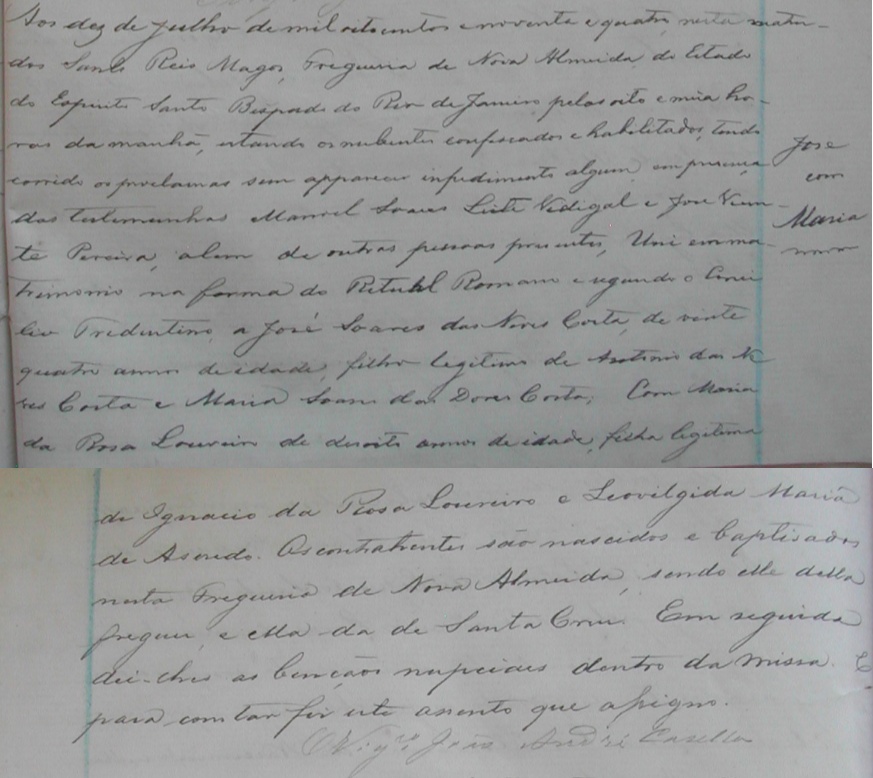 Aos dez de Julho de mil oitocentos e noventa e quatro, nesta matriz
dos Santos Reis Magos, Freguesia de Nova Almeida, do Estado
do Espirito Santo Bispado do Rio de Janeiro pelas oito e meia ho-
ras da manhã, estando os nubentes confessados e habilitados, tendo
corrido os proclamas sem apparecer impedimento algum, em presença
das testemunhas Manoel Soares Leite Vidigal e José Vicen-
te Pereira, alem de outras pessoas presentes, Uni em ma-
trimonio na forma do Ritual Romano e segundo o Conci
lio Tredentino, a José Soares das Neves Costa, de vinte
quatro annos de idade, filho legitimo de Antonio das Ne
ves Costa e Maria Soares das Dores Costa; Com Maria
da Rosa Loureiro de desoito annos de idade, filha legitima
José
com
Maria
de Ignacio da Rosa Loureiro e Leovilgida Maria
de Asevedo. Os contrahentes são nascidos e baptisados
nesta Freguesia de Nova Almeida, sendo elle desta
freguesia, e ella da de Santa Cruz. Em seguida
dei-lhes as bençãos nupciaes dentro da missa. E
para constar fiz este assento que assigno.
O Vigº João André Casella